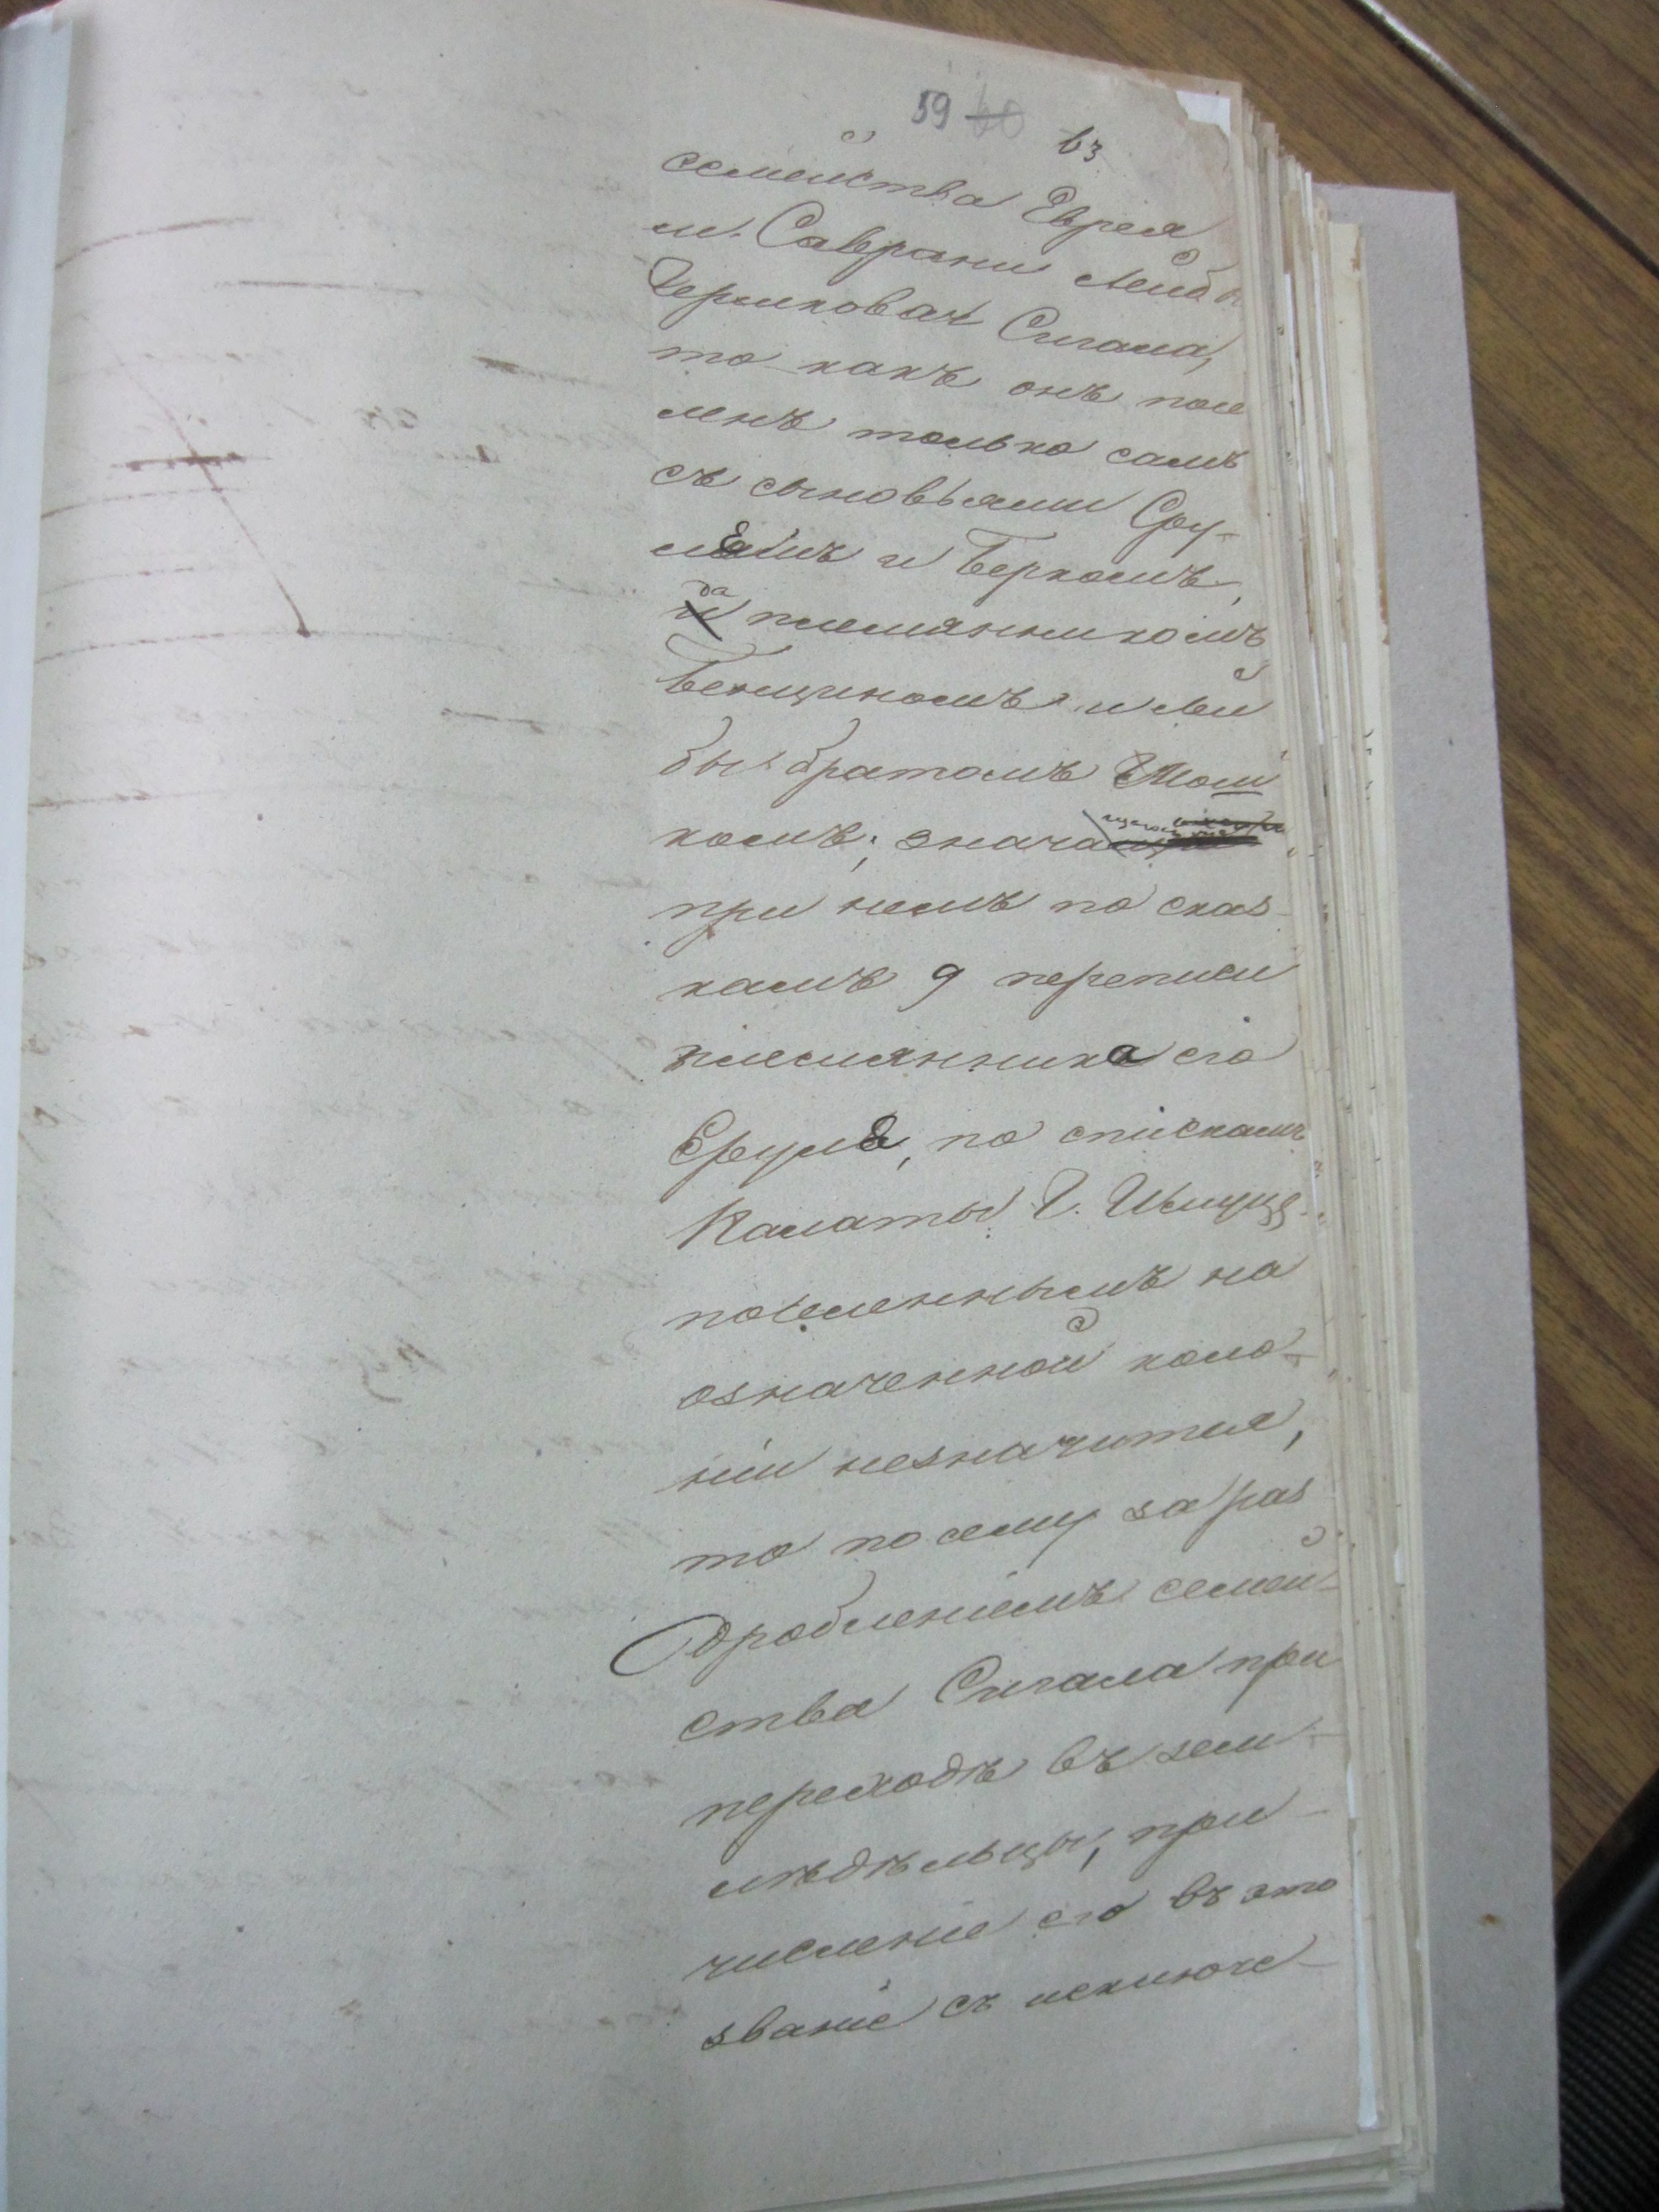 59 60
63
семейства Еврея
м. Саврани Лейбы
Гершкова Сигала,
то какъ онъ посе
ленъ только самъ
съ сыновьями Сру-
лемъ и Беркомъ,
да
и племянникомъ
Бенционъ и Лей
бы братомъ Мош
комъ; значащ
при немъ по сказ
камъ 9 переписи
племянника его
Сруля, по спискамъ
Палаты Г. Имущ.
поселеннымъ на
означенной коло-
ніи незначится,
то посему за раз
дробленіемъ семей-
ства Сигала при
переходѣ въ зем-
ледѣльцы, при-
численіе его въ это
званіе съ исключе-